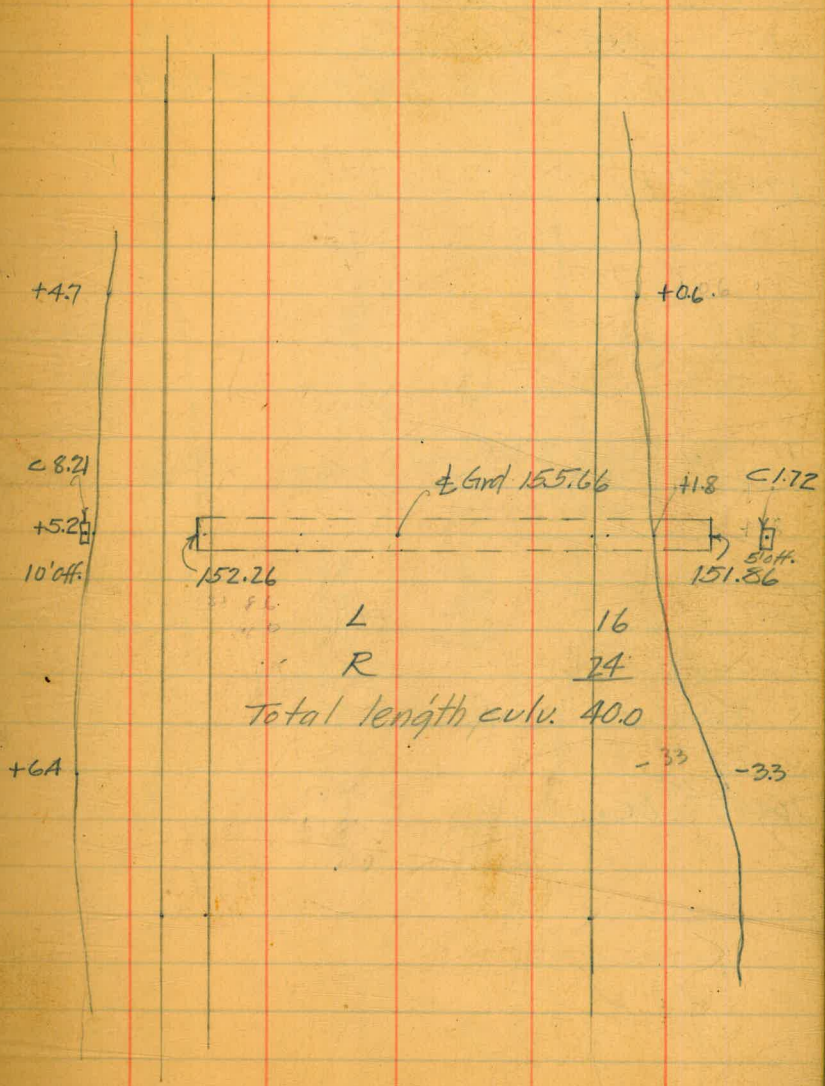 +4.7
+0.6
C 8.21
℄ Grd 155.66
+1.8
C 1.72
+5.2
10' off.
5' off.
152.26
151.86
L 16
R 24
Total length culv. 40.0
+6.4
-33
-3.3